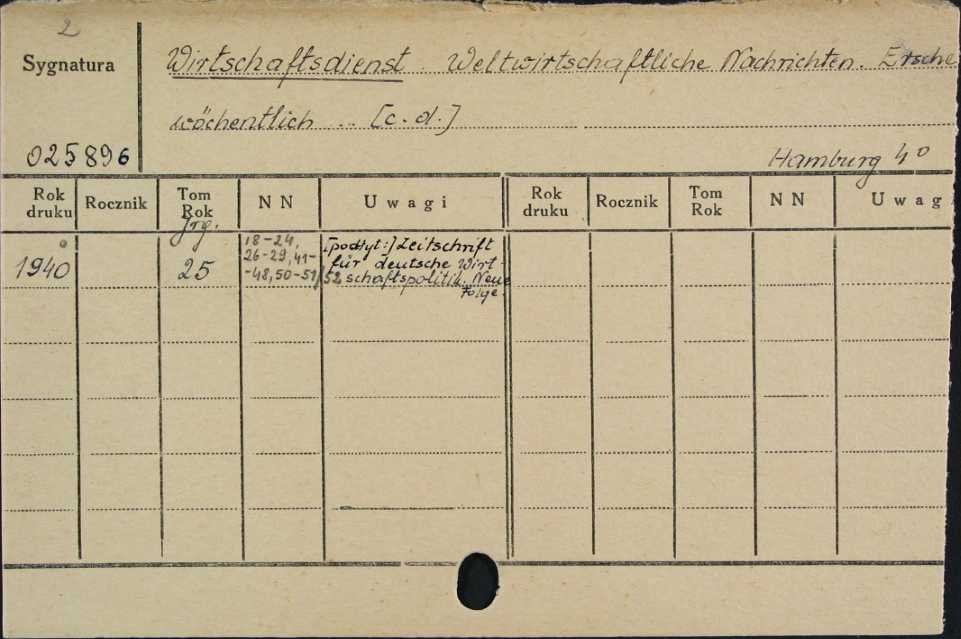 2
Sygnatura
Wirtschaftsdienst. Weltwirtschaftliche Nachrichten. Ersche
wöchentlich ... [c.d.]
025896
Hamburg 4°
Rok druku Rocznik Tom Rok NN Uwagi Rok druku Rocznik Tom Rok NN Uwag
Jrg.
1940 25 18-24, [podtyt:] Zeitschrift
26-29, 41- für deutsche Wirt-
-48, 50-51/52 schaftspolitik. Neue
Folge.